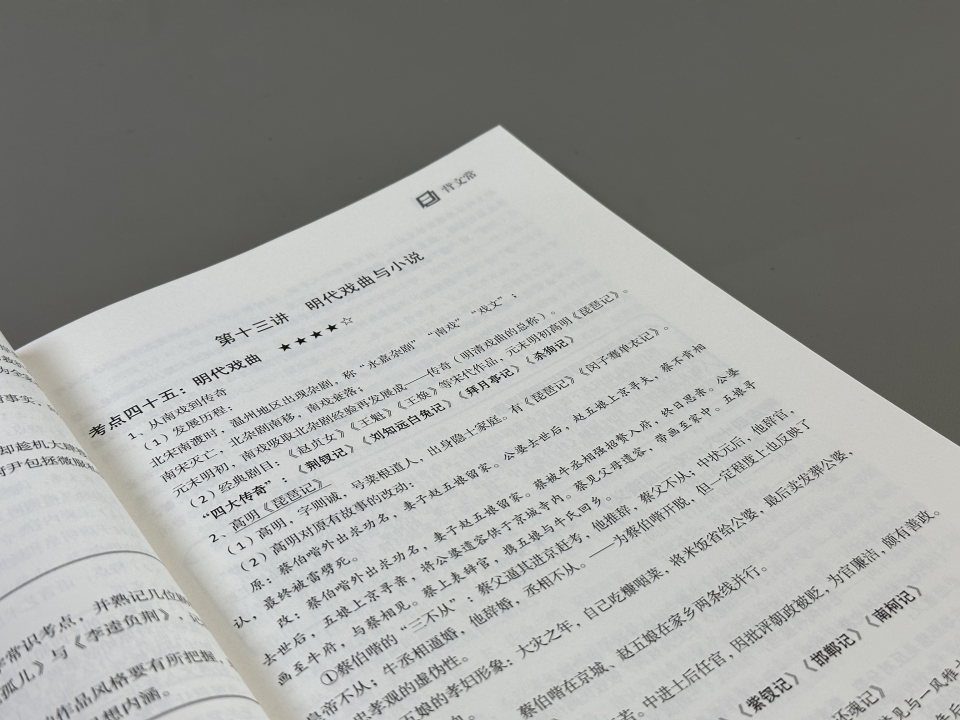 事实，
却趁机大
开包拯微服
学常识考点，并熟记几位
孤儿》与《李逵负荆》，
作品风格要有所把握，
想内涵。
背文常
第十三讲 明代戏曲与小说
考点四十五：明代戏曲 ★★★★☆
1、从南戏到传奇
（1）发展历程：
北宋南渡时，温州地区出现杂剧，称“永嘉杂剧”“南戏”“戏文”；
南宋灭亡，北杂剧南移，南戏衰落；
元末明初，南戏吸取北杂剧经验再发展成——传奇（明清戏曲的总称）。
（2）经典剧目：《赵贞女》《王魁》《王焕》等宋代作品，元末明初高明《琵琶记》。
“四大传奇”：《荆钗记》《刘知远白兔记》《拜月亭记》《杀狗记》
2、高明《琵琶记》
（1）高明，字则诚，号菜根道人，出身隐士家庭。有《琵琶记》《闵子骞单衣记》。
（2）高明对原有故事的改动：
原：蔡伯喈外出求功名，妻子赵五娘留家。公婆去世后，赵五娘上京寻夫，蔡不肯相
认，最终被雷劈死。
改：蔡伯喈外出求功名，妻子赵五娘留家。蔡被牛丞相强招赘入府，终日思亲。公婆
去世后，五娘上京寻亲，将公婆遗容供于京城寺内。蔡见父母遗容，带画至家中。五娘寻
至牛府，与蔡相见。蔡上表辞官，携五娘与牛氏回乡。
①蔡伯喈的“三不从”：蔡父逼其进京赶考，他推辞，蔡父不从；中状元后，他辞官，
皇帝不从；牛丞相逼婚，他辞婚，丞相不从。——为蔡伯喈开脱，但一定程度上也反映了
忠孝观的虚伪性。
五娘的孝妇形象：大灾之年，自己吃糠咽菜，将米饭省给公婆，最后卖发葬公婆，
蔡伯喈在京城、赵五娘在家乡两条线并行。
中进士后任官，因批评朝政被贬，为官廉洁，颇有善政。
《紫钗记》《邯郸记》《南柯记》